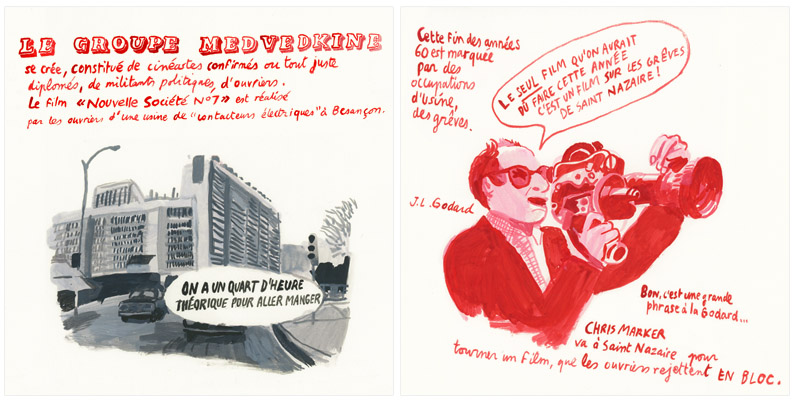 LE GROUPE MEDVEDKINE
se crée, constitué de cinéastes confirmés ou tout juste
diplomés, de militants politiques, d'ouvriers.
Le film «Nouvelle Société N°7» est réalisé
par les ouvriers d'une usine de "contacteurs électriques" à Besançon.
ON A UN QUART D'HEURE
THÉORIQUE POUR ALLER MANGER
Cette fin des années
60 est marquée
par des
occupations
d'usine,
des grèves.
LE SEUL FILM QU'ON AURAIT
DÛ FAIRE CETTE ANNÉE
C'EST UN FILM SUR LES GRÈVES
DE SAINT NAZAIRE !
J.L. Godard
Bon, c'est une grande
phrase à la Godard...
CHRIS MARKER
va à Saint Nazaire pour
tourner un film, que les ouvriers rejettent EN BLOC.